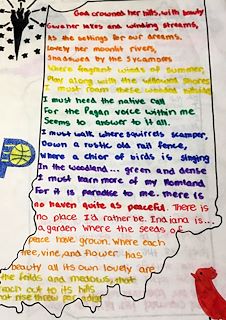 God crowned her hills, with beauty
Gave her lakes and winding streams,
As the settings for our dreams,
Lovely her moonlit rivers,
Shadowed by the Sycamores
Where fragrant winds of summer
Play along with the willowed shores
I must roam these wooded hillside
I must heed the native call
For the Pagan voice within me
Seems to answer to it all.
I must walk where squirrels scamper,
Down a rustic old rail fence,
Where a chior of birds is singing
In the woodland... green and dense
I must learn more of my Homland
For it is paradise to me. there is
no haven quite as peaceful. There is
no place I'd rather be. Indiana is...
a garden where the seeds of
peace have grown, where each
tree, vine, and flower has
beauty all its own lovely are
the feilds and medows, that
reach out to its hills
that rise threw